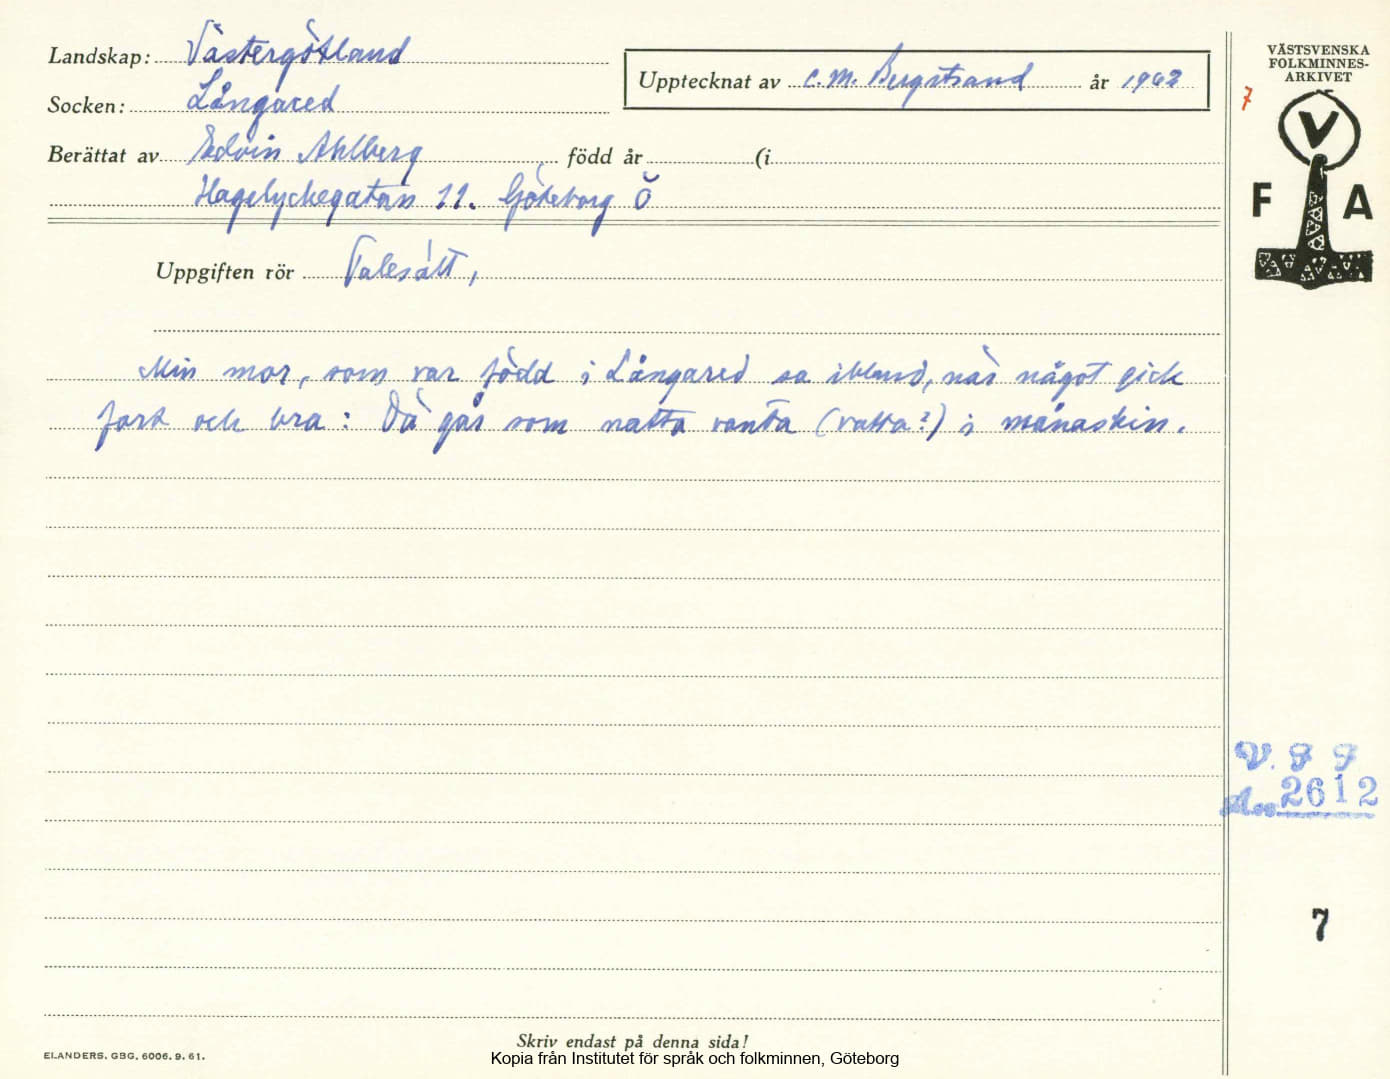 Landskap: Västergötland
Socken: Långared
Upptecknat av C.M. Bergstrand år 1962
Berättat av Edvin Ahlberg född år (i
Hagelyckegatan 11. Göteborg Ö
Uppgiften rör Talesätt,
Min mor, som var född i Långared sa ibland, när något gick
fort och bra: Dä går som natta vanta (vatta?) i månaskin.
VÄSTSVENSKA
FOLKMINNES-
ARKIVET
7
V
F A
V. F F
Acc 2612
7
Skriv endast på denna sida!
ELANDERS. GBG. 6006. 9. 61.
Kopia från Institutet för språk och folkminnen, Göteborg